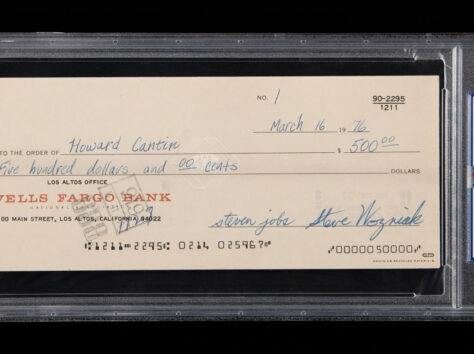 NO. 1
90-2295
1211
March 16 1976
TO THE ORDER OF Howard Cantin $ 500 00
Five hundred dollars and 00 cents DOLLARS
LOS ALTOS OFFICE
WELLS FARGO BANK
00 MAIN STREET, LOS ALTOS, CALIFORNIA 94022
steven jobs Steve Wozniak
⑆1211⑉2295⑆ 0214 025967⑈ ⑈0000050000⑈